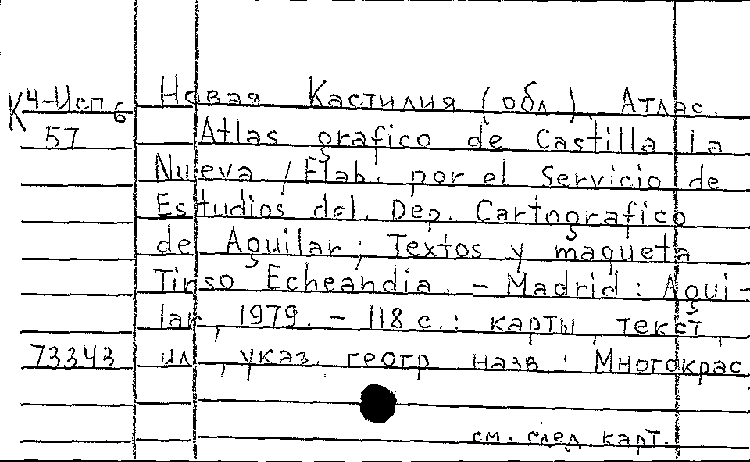 К 4-Исп6 Новая Кастилия (обл.). Атлас.
57 Atlas grafico de Castilla la
Nueva / Elab. por el Servicio de
Estudios del. Dep. Cartografico
de Aguilar; Textos y maqueta
Tirso Echeandia. - Madrid: Agui-
lar, 1979. - 118 с.: карты, текст,
73343 ил., указ. геогр. назв.: Многокрас.
см. след. карт.